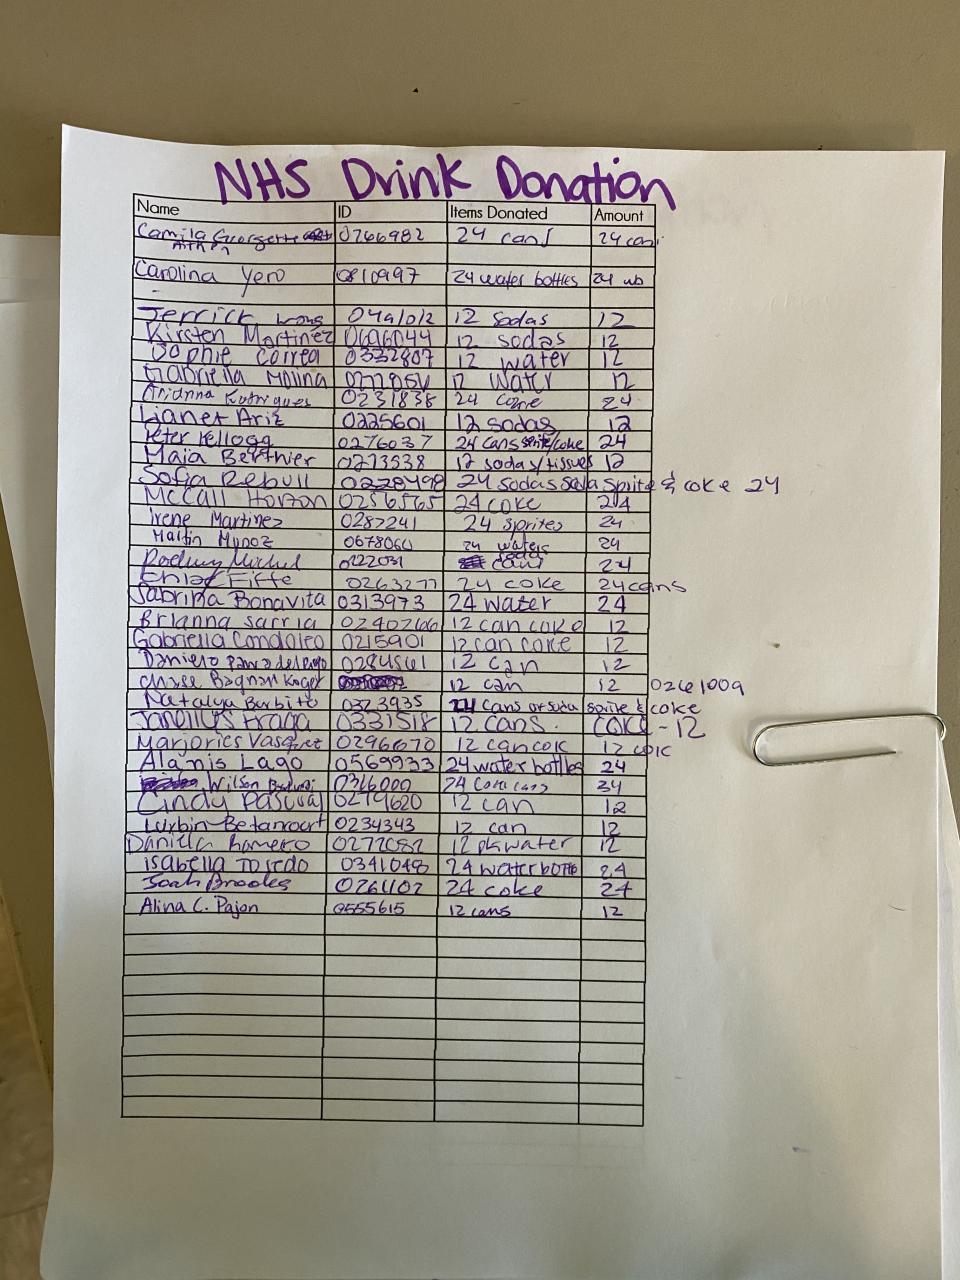 NHS Drink Donation
Name ID Items Donated Amount
Camila Georgette 0766982 24 cans 24 cans
Carolina Yero 0810997 24 water bottles 24 wb
Jerrick Wong 12 sodas 12
Kirsten Martinez 0696044 12 sodas 12
Sophie Correa 0332807 12 water 12
Gabriella Molina 12 water 12
Arianna Rodriguez 0231838 24 coke 24
Lianet Ariz 0225601 12 sodas 12
Peter Kellogg 0276037 24 cans sprite/coke 24
Maia Berthier 0273338 12 sodas/tissues 12
Sofia Rebull 0228498 24 sodas soda sprite & coke 24
McCall Horton 0256565 24 coke 24
Irene Martinez 0287241 24 sprites 24
Martin Munoz 0678060 24 waters 24
soda
0222031 cans 24
Chloe Fiffe 0263277 24 coke 24 cans
Sabrina Bonavita 0313973 24 water 24
Brianna Sarria 0240266 12 can coke 12
Gabriella Condoleo 0215901 12 can coke 12
Daniero 12 can 12
12 can 12 0261009
Natalya Barbito 0323935 24 cans of soda sprite & coke
Janellys Fraga 0331518 12 cans. coke - 12
Marjories Vasquez 0296670 12 can cok 12 coke
Alanis Lago 0569933 24 water bottles 24
Wilson 0346000 24 coca cans 34
Cindy Pascual 0279620 12 can 12
Lurbin Betancourt 0234343 12 can 12
Daniela Romero 0277082 12 pk water 12
Isabella Toledo 0341048 24 water bottle 24
Josh Brooks 0261102 24 coke 24
Alina C. Pajon 0555615 12 cans 12